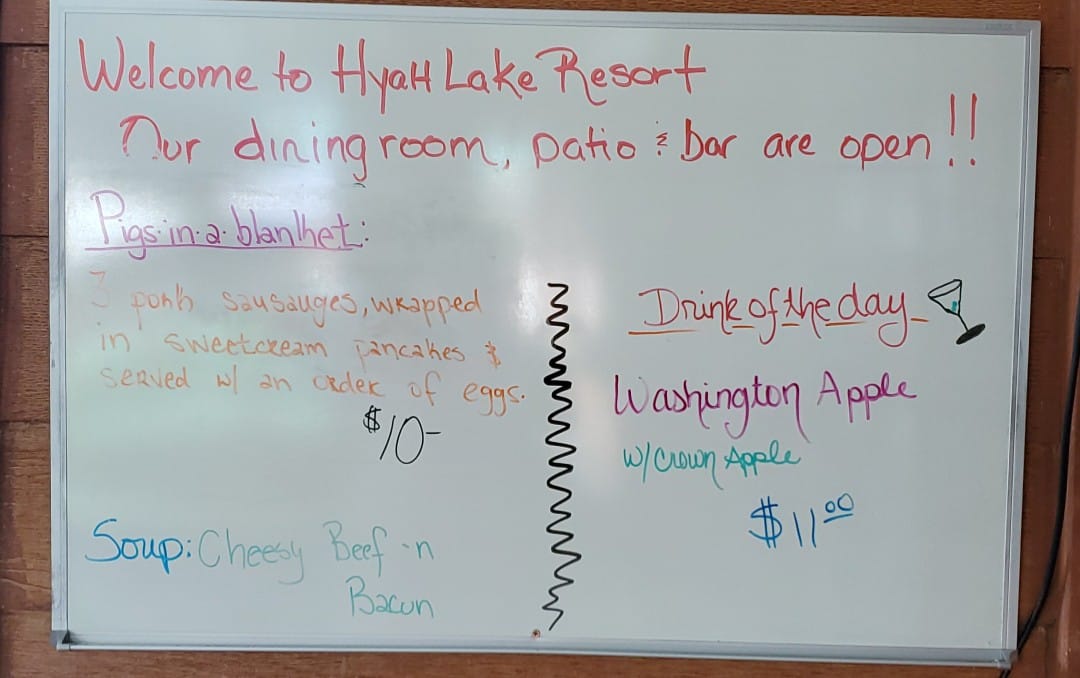 Welcome to Hyatt Lake Resort
Our dining room, patio & bar are open!!
Pigs-in-a-blanket:
3 pork sausauges, wrapped
in sweetcream pancakes &
served w/ an order of eggs.
$10-
Soup: Cheesy Beef -n
Bacon
Drink of the day
Washington Apple
w/ Crown Apple
$11.00